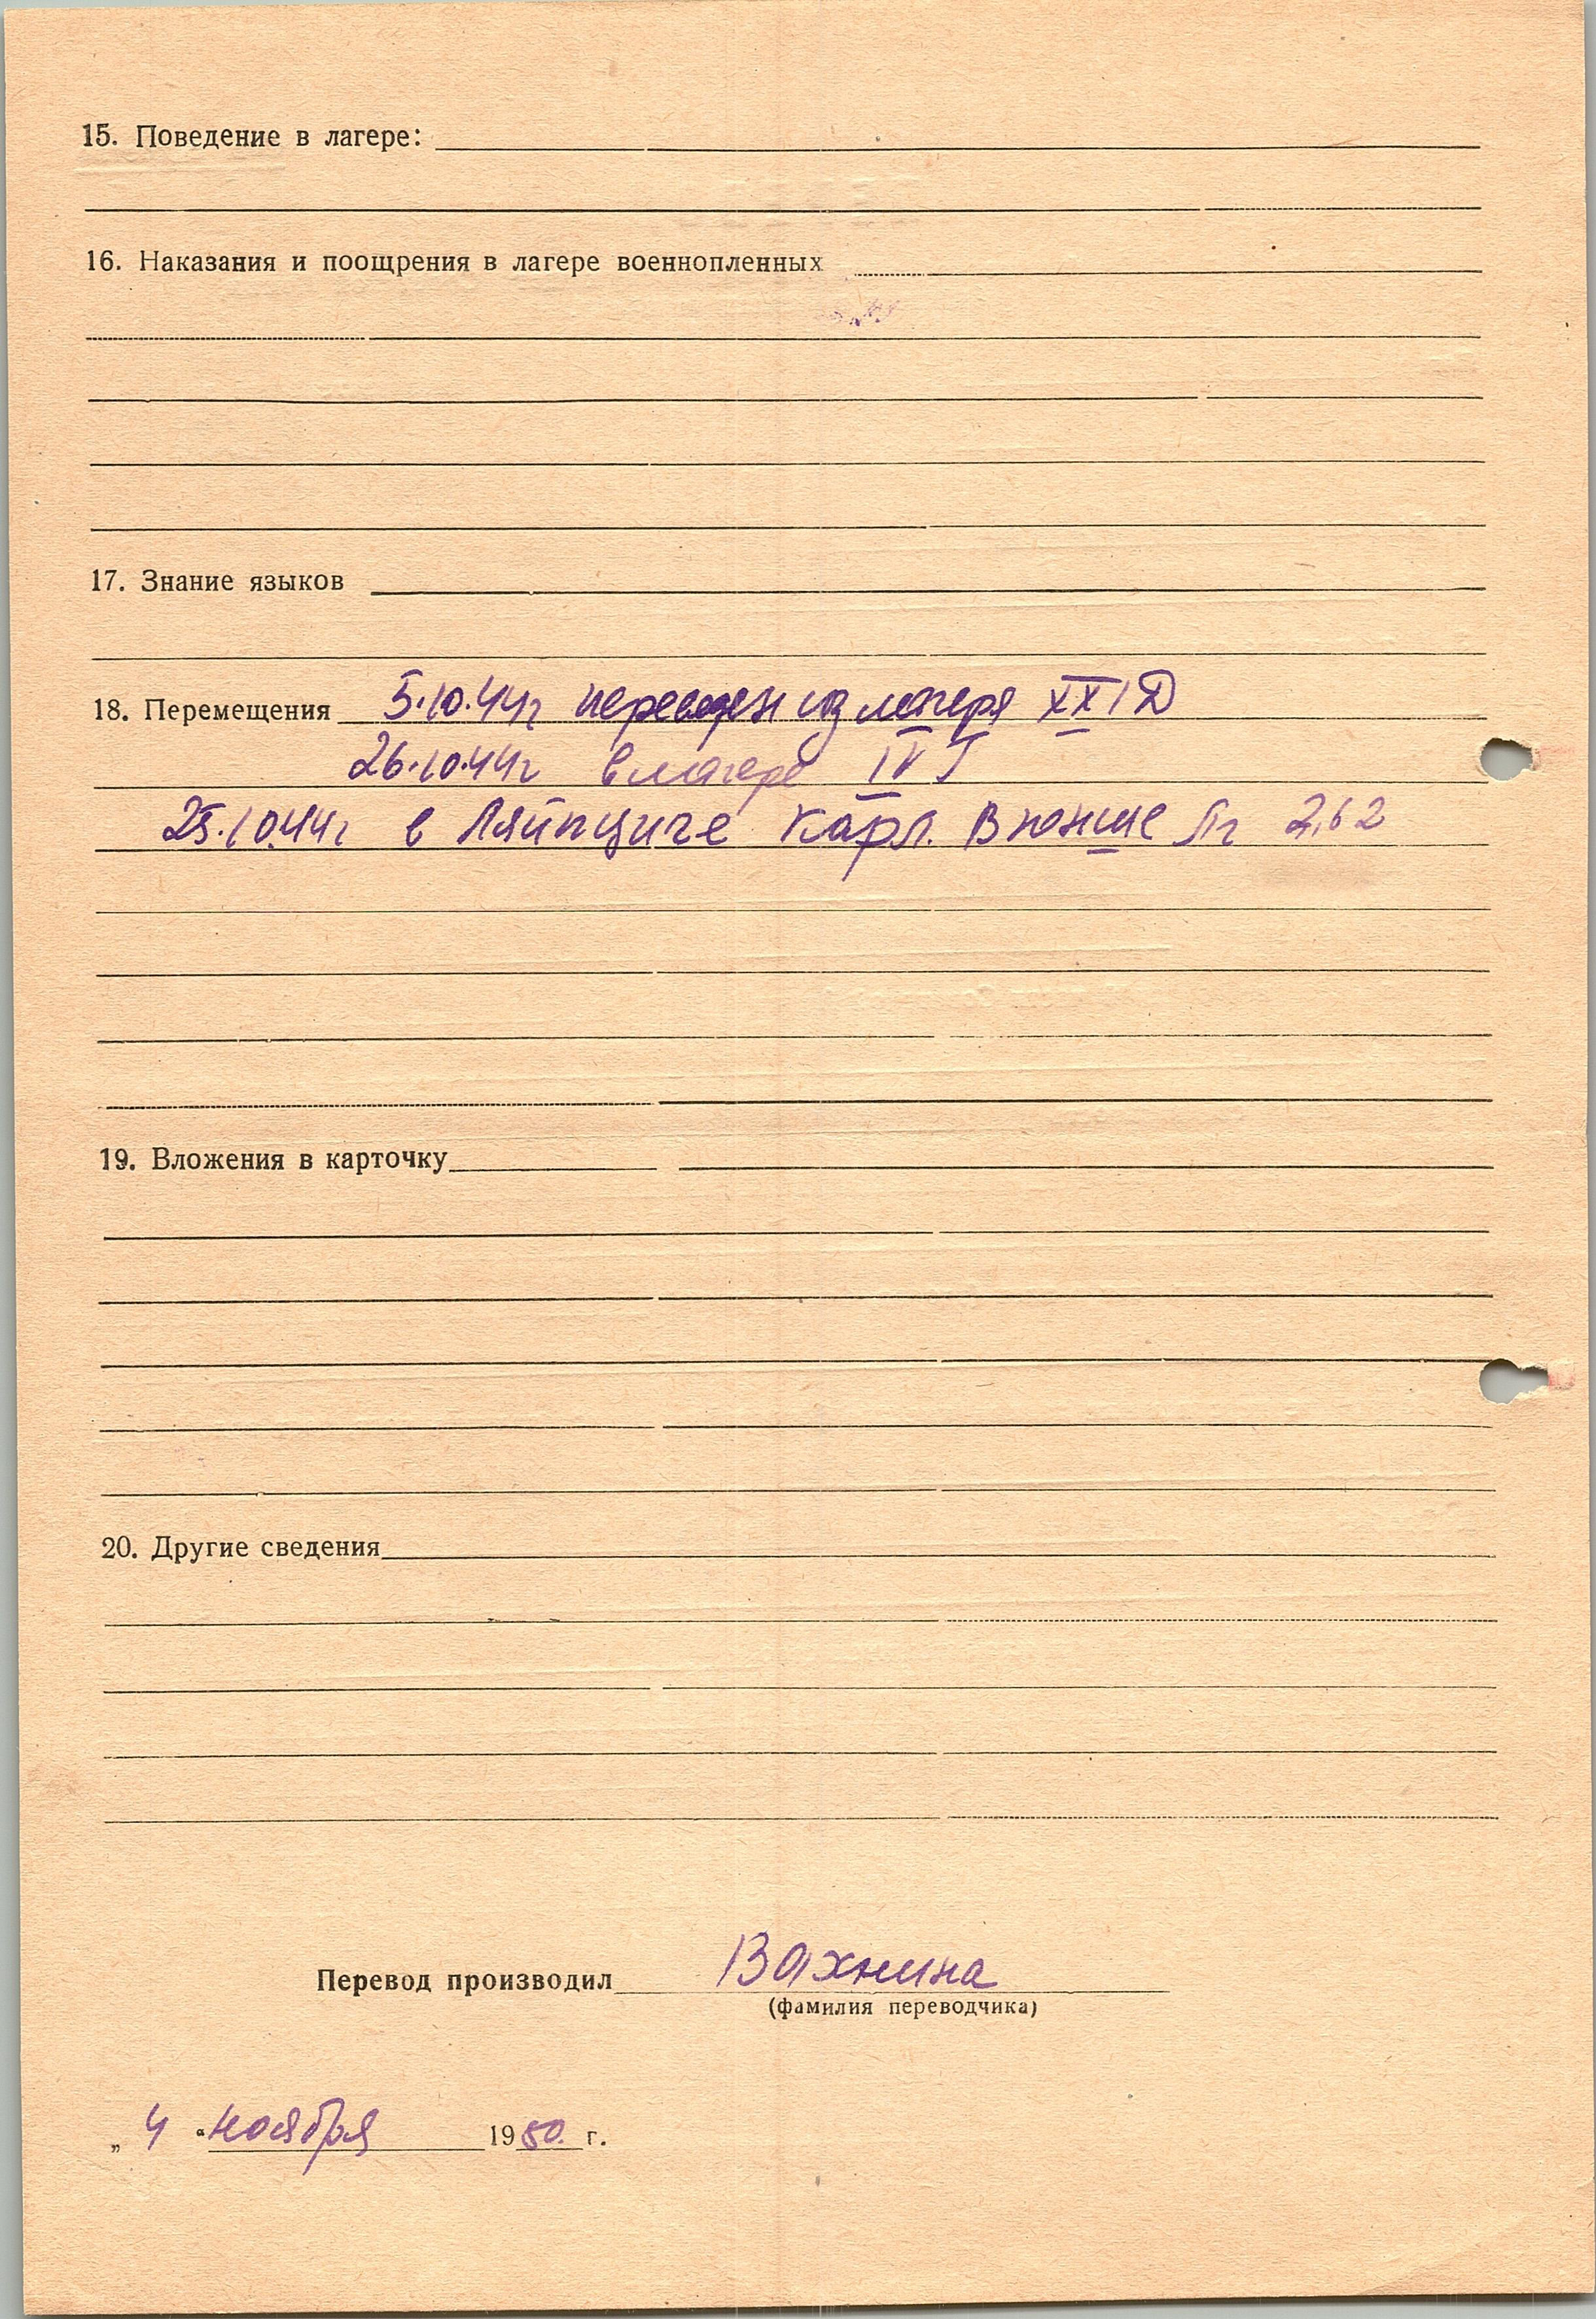 15. Поведение в лагере:
16. Наказания и поощрения в лагере военнопленных
17. Знание языков
18. Перемещения 5.10.44г переведен из лагеря XXI Д
26.10.44г в лагере IV
25.10.44г в Ляйпциге Карл. Внонше Лг 262
19. Вложения в карточку
20. Другие сведения
Перевод производил Вахнина
(фамилия переводчика)
„ 4 “ ноября 1950 г.